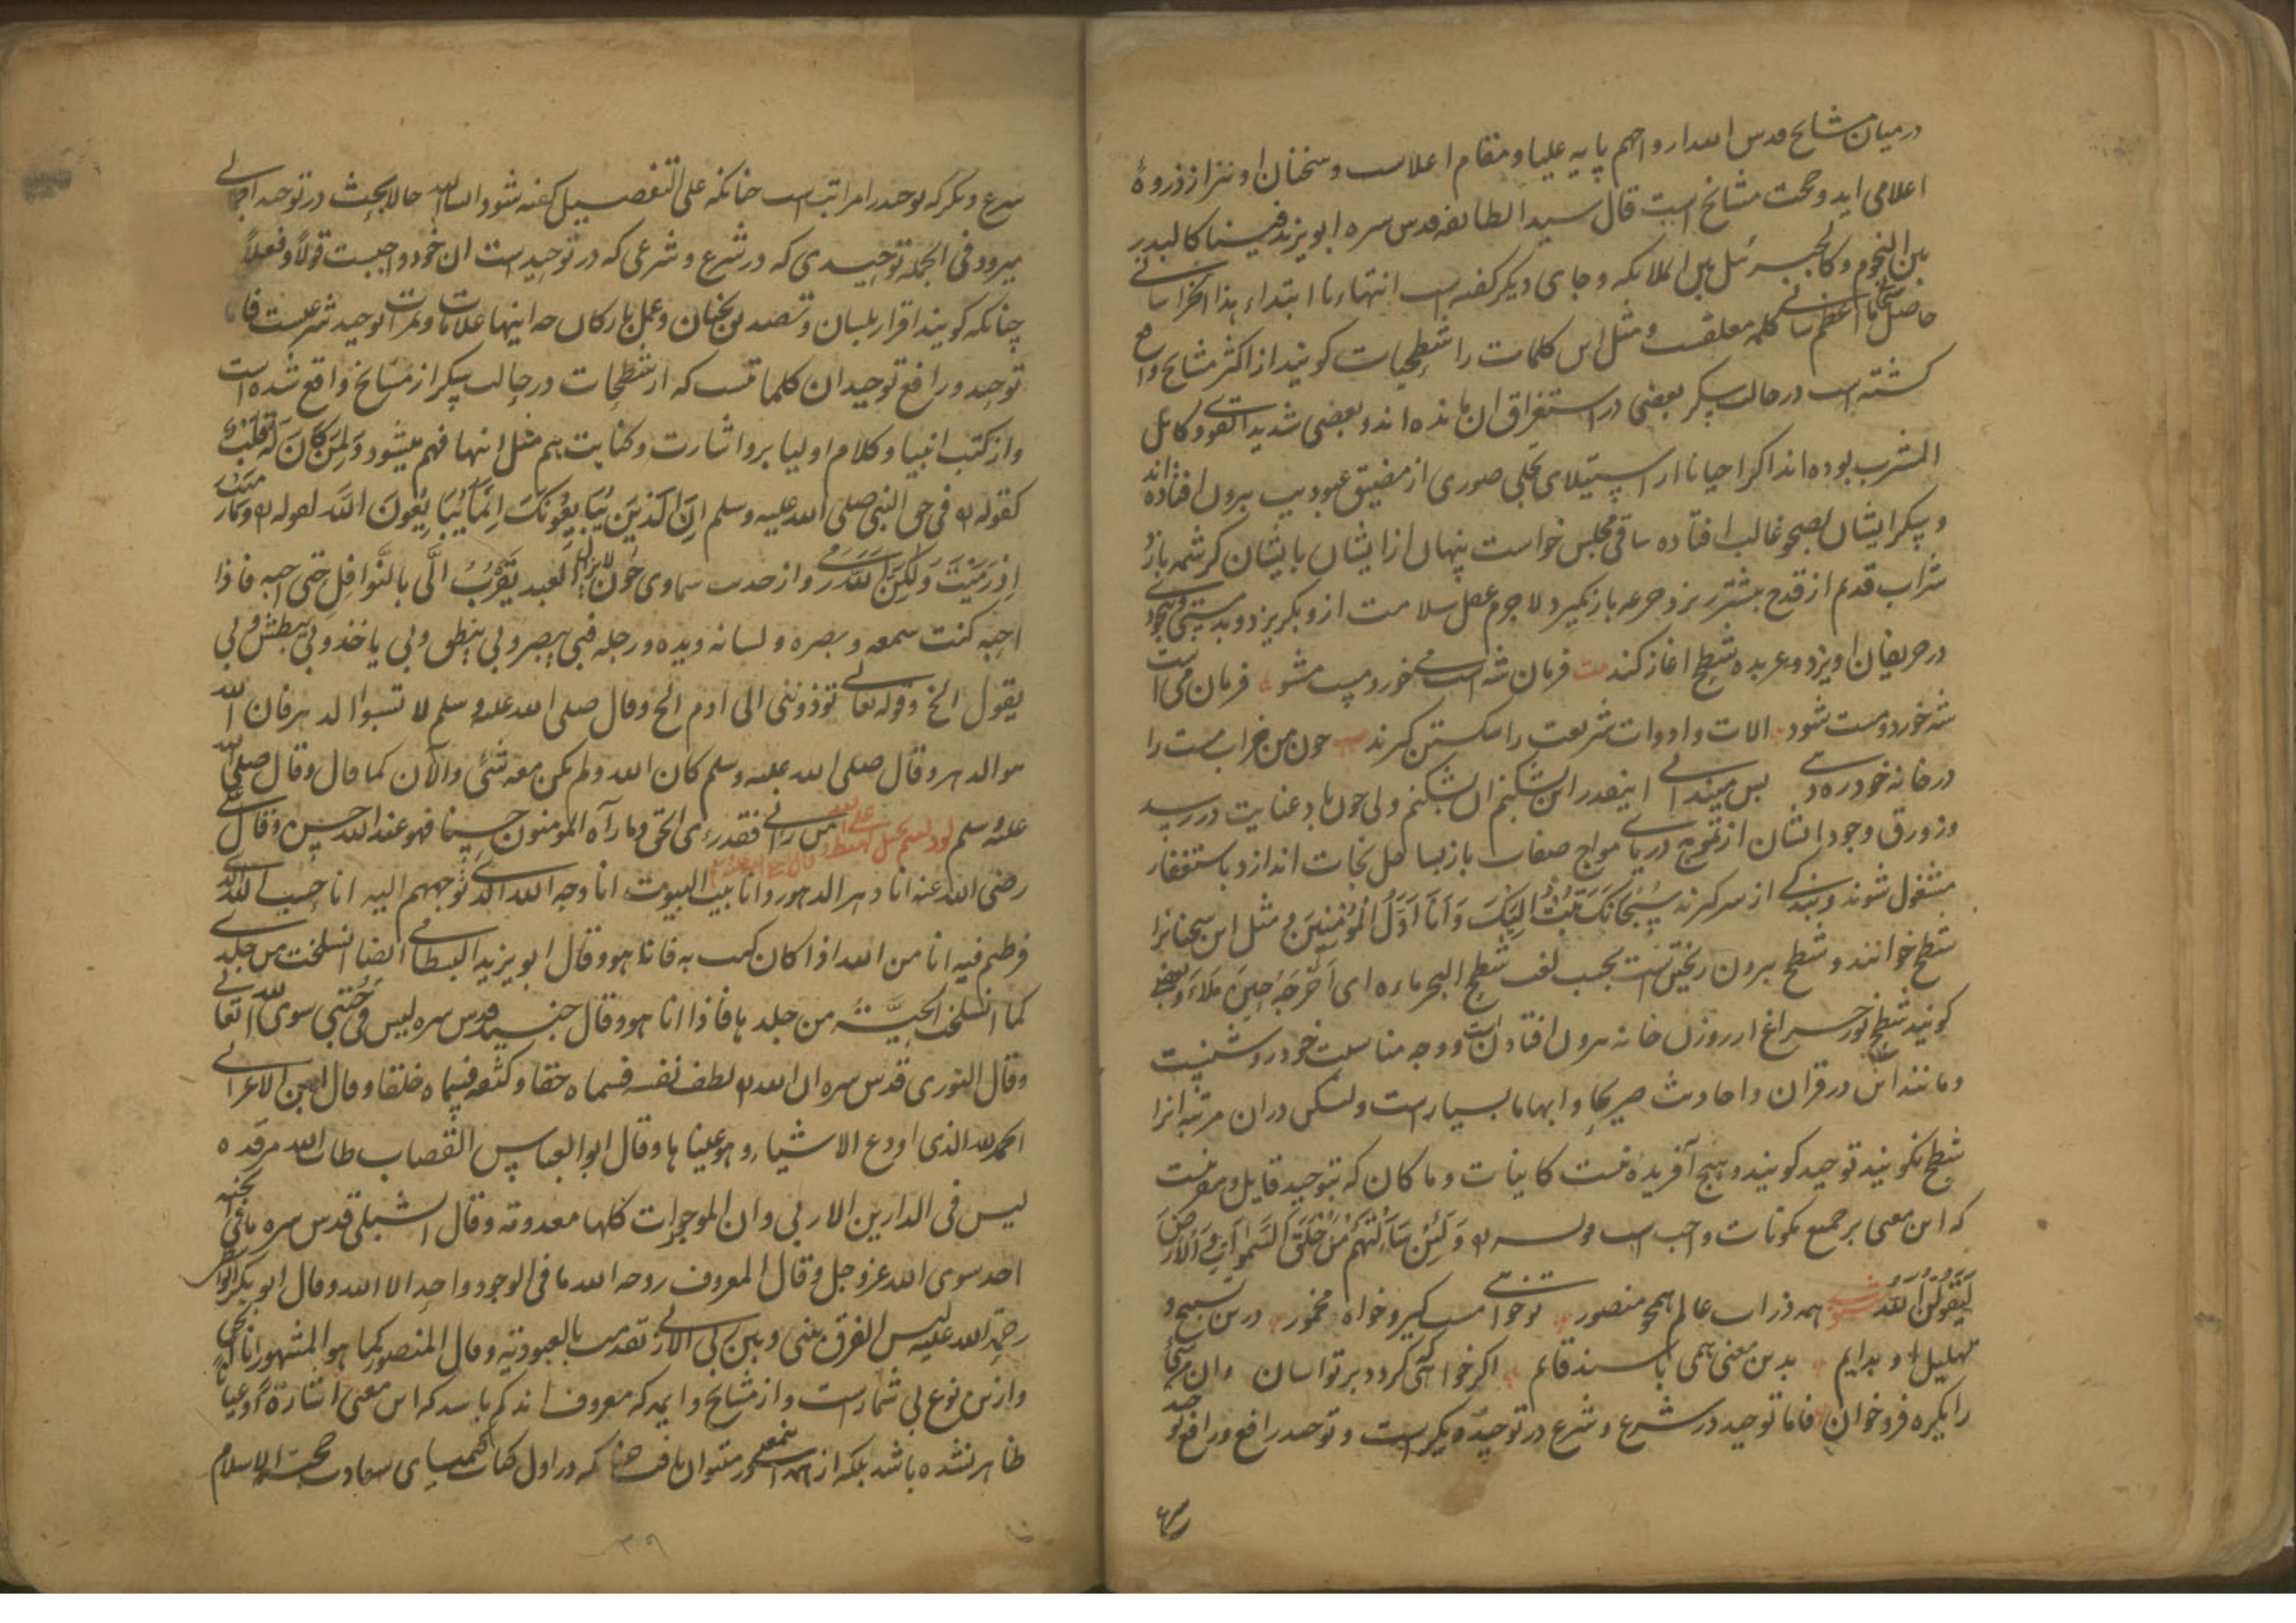 درمیان مشایخ قدس الله ارواحهم پایه علیا و مقام اعلاست و سخنان او نیز از ذروهٔ
اعلا می اید و حجت مشایخ است قال سید الطائفه قدس سره ابو یزید فینا کالبدر
بین النجوم و کالجبرئیل بین الملائکه و جای دیگر کفته است انتهاءنا ابتداء هذا الخراسانی
حاصل سبحانی ما اعظم شانی کلمه و مثل این کلمات را شطحیات کویند از اکثر مشایخ واقع
کشته است در حالت سکر بعضی در استغراق ان مانده اند و بعضی شدید القوی و کامل
المشرب بوده اند اکر احیانا از استیلای تجلی صوری از مضیق عبودیت بیرون افتاده اند
و سکر ایشان بصحو غالب افتاده ساقی مجلس خواست پنهان از ایشان با ایشان کرشمه بازد و
شراب قدم از قدح بیشتر ریزد جرعه باز نکیرد لاجرم عقل سلامت ازو بکریزد و بدمستی وجود
در حریفان اویزد و عربده شطح اغاز کند فرمان شه است می خور و مست مشو فرمان می است
شه خورد و مست شود الات و ادوات شریعت را شکستن کیرند چون من خراب مست را
در خانه خود ره دهی پس میندانی اینقدر این بشکنم ان بشکنم ولی چون باد عنایت در رسید
و زورق وجود ایشان از تموج دریای مواج صفات باز بساحل نجات اندازد باستغفار
مشغول شوند و بندکی از سر کیرند سُبْحَانَكَ تُبْتُ اِلَيْكَ وَ اَنَا اَوَّلُ الْمُؤْمِنِينَ و مثل این سخنانرا
شطح خوانند و شطح بیرون ریختن است بحسب لغت شطح البحر ماءه ای اخرجه حین ملاء و بعضی
کویند شطح نور چراغ از روزن خانه بیرون افتادن است و وجه مناسبت خود روشنست
و مانند این در قران و احادیث صریحا و ابهاما بسیار است ولیکن دران مرتبه انرا
شطح نکویند توحید کویند و هیچ آفریده نیست کاینات و ما کان که بتوحید قایل و معرفت
که این معنی بر جمیع مکونات واجب است قوله تع وَلَئِنْ سَاَلْتَهُمْ مَنْ خَلَقَ السَّمٰوَاتِ وَالْاَرْضَ
لَيَقُولُنَّ اللّٰهُ همه ذرات عالم همچو منصور تو خواهی مست کیر و خواه مخمور درین تسبیح و
تهلیل اند دایم بدین معنی همی باشند قائم اکر خواهی که کردد بر تو اسان وان من شی
را یکره فرو خوان فاما توحید در شرع و شرع در توحید دیکر است و توحید رافع و رافع توحید
شرع
شرع و دیکر که توحید را مراتب است چنانکه علی التفصیل کفته شود انشاء الله حالا بحث در توحید اجمالی
میرود فی الجمله توحیدی که در شرع و شرعی که در توحید است ان خود واجبست قولاً و فعلاً
چنانکه کویند اقرار بلسان و تصدیق بجنان و عمل بارکان چه اینها علامات و ثمرات توحید شرعیست فاما
توحید و رافع توحید ان کلماتست که از شطحیات در حالت سکر از مشایخ واقع شده است
و از کتب انبیا و کلام اولیا برو اشارت و کنایت هم مثل اینها فهم میشود لِمَنْ كَانَ لَهُ قَلْبٌ
کقوله تع فی حق النبی صلی الله علیه وسلم اِنَّ الَّذِينَ يُبَايِعُونَكَ اِنَّمَا يُبَايِعُونَ اللّٰهَ لقوله تع وَمَا رَمَيْتَ
اِذْ رَمَيْتَ وَلٰكِنَّ اللّٰهَ رَمٰى و از حدیث سماوی چون لایزال العبد یتقرب الی بالنوافل حتی احبه فاذا
احبه کنت سمعه و بصره و لسانه و یده و رجله فبی یبصر و بی ینطق و بی یاخذ و بی یبطش و بی
یقول الخ و قوله تعالی توذوننی الی ادم الخ و قال صلی الله علیه وسلم لا تسبوا الدهر فان الله
هو الدهر و قال صلی الله علیه وسلم کان الله و لم یکن معه شئ والآن کما قال و قال صلی الله
علیه وسلم لو دلیتم بحبل لهبط علی الله من رانی فقد رءی الحق و ما رآه المومنون حسنا فهو عند الله حسن و قال علی
رضی الله عنه انا دهر الدهور و انا بیت البیوت انا وجه الله الذی توجههم الیه انا جنب الله الذی
فرطتم فیه انا من الله اذا کان به فانا هو و قال ابو یزید البسطامی ایضا انسلخت من جلدی
کما انسلخت الحیة من جلدها فاذا انا هو و قال جنید قدس سره لیس فی جبتی سوی الله تعالی
و قال النوری قدس سره ان الله تع لطف نفسه فسماه حقا و کثفه فسماه خلقا و قال ابن الاعرابی
الحمد لله الذی اودع الاشیاء و هو عینها و قال ابو العباس القصاب طاب الله مرقده
لیس فی الدارین الا ربی و ان الموجودات کلها معدومة و قال الشبلی قدس سره ما فی الجنة
احد سوی الله عز و جل و قال المعروف روحه الله ما فی الوجود واحد الا الله و قال ابو بکر الوراق
رحمة الله علیه لیس الفرق بینی و بین ربی الا انی تقدمت بالعبودیة و قال المنصور کما هو المشهور انا الحق
و ازین نوع بی شمار است و از مشایخ و ایمه که معروف اند کم باشد که این معنی اشارة او عیانا
ظاهر نشده باشد بلکه از همه در میتوان یافت چنانکه در اول کتاب کیمیای سعادت حجة الاسلام